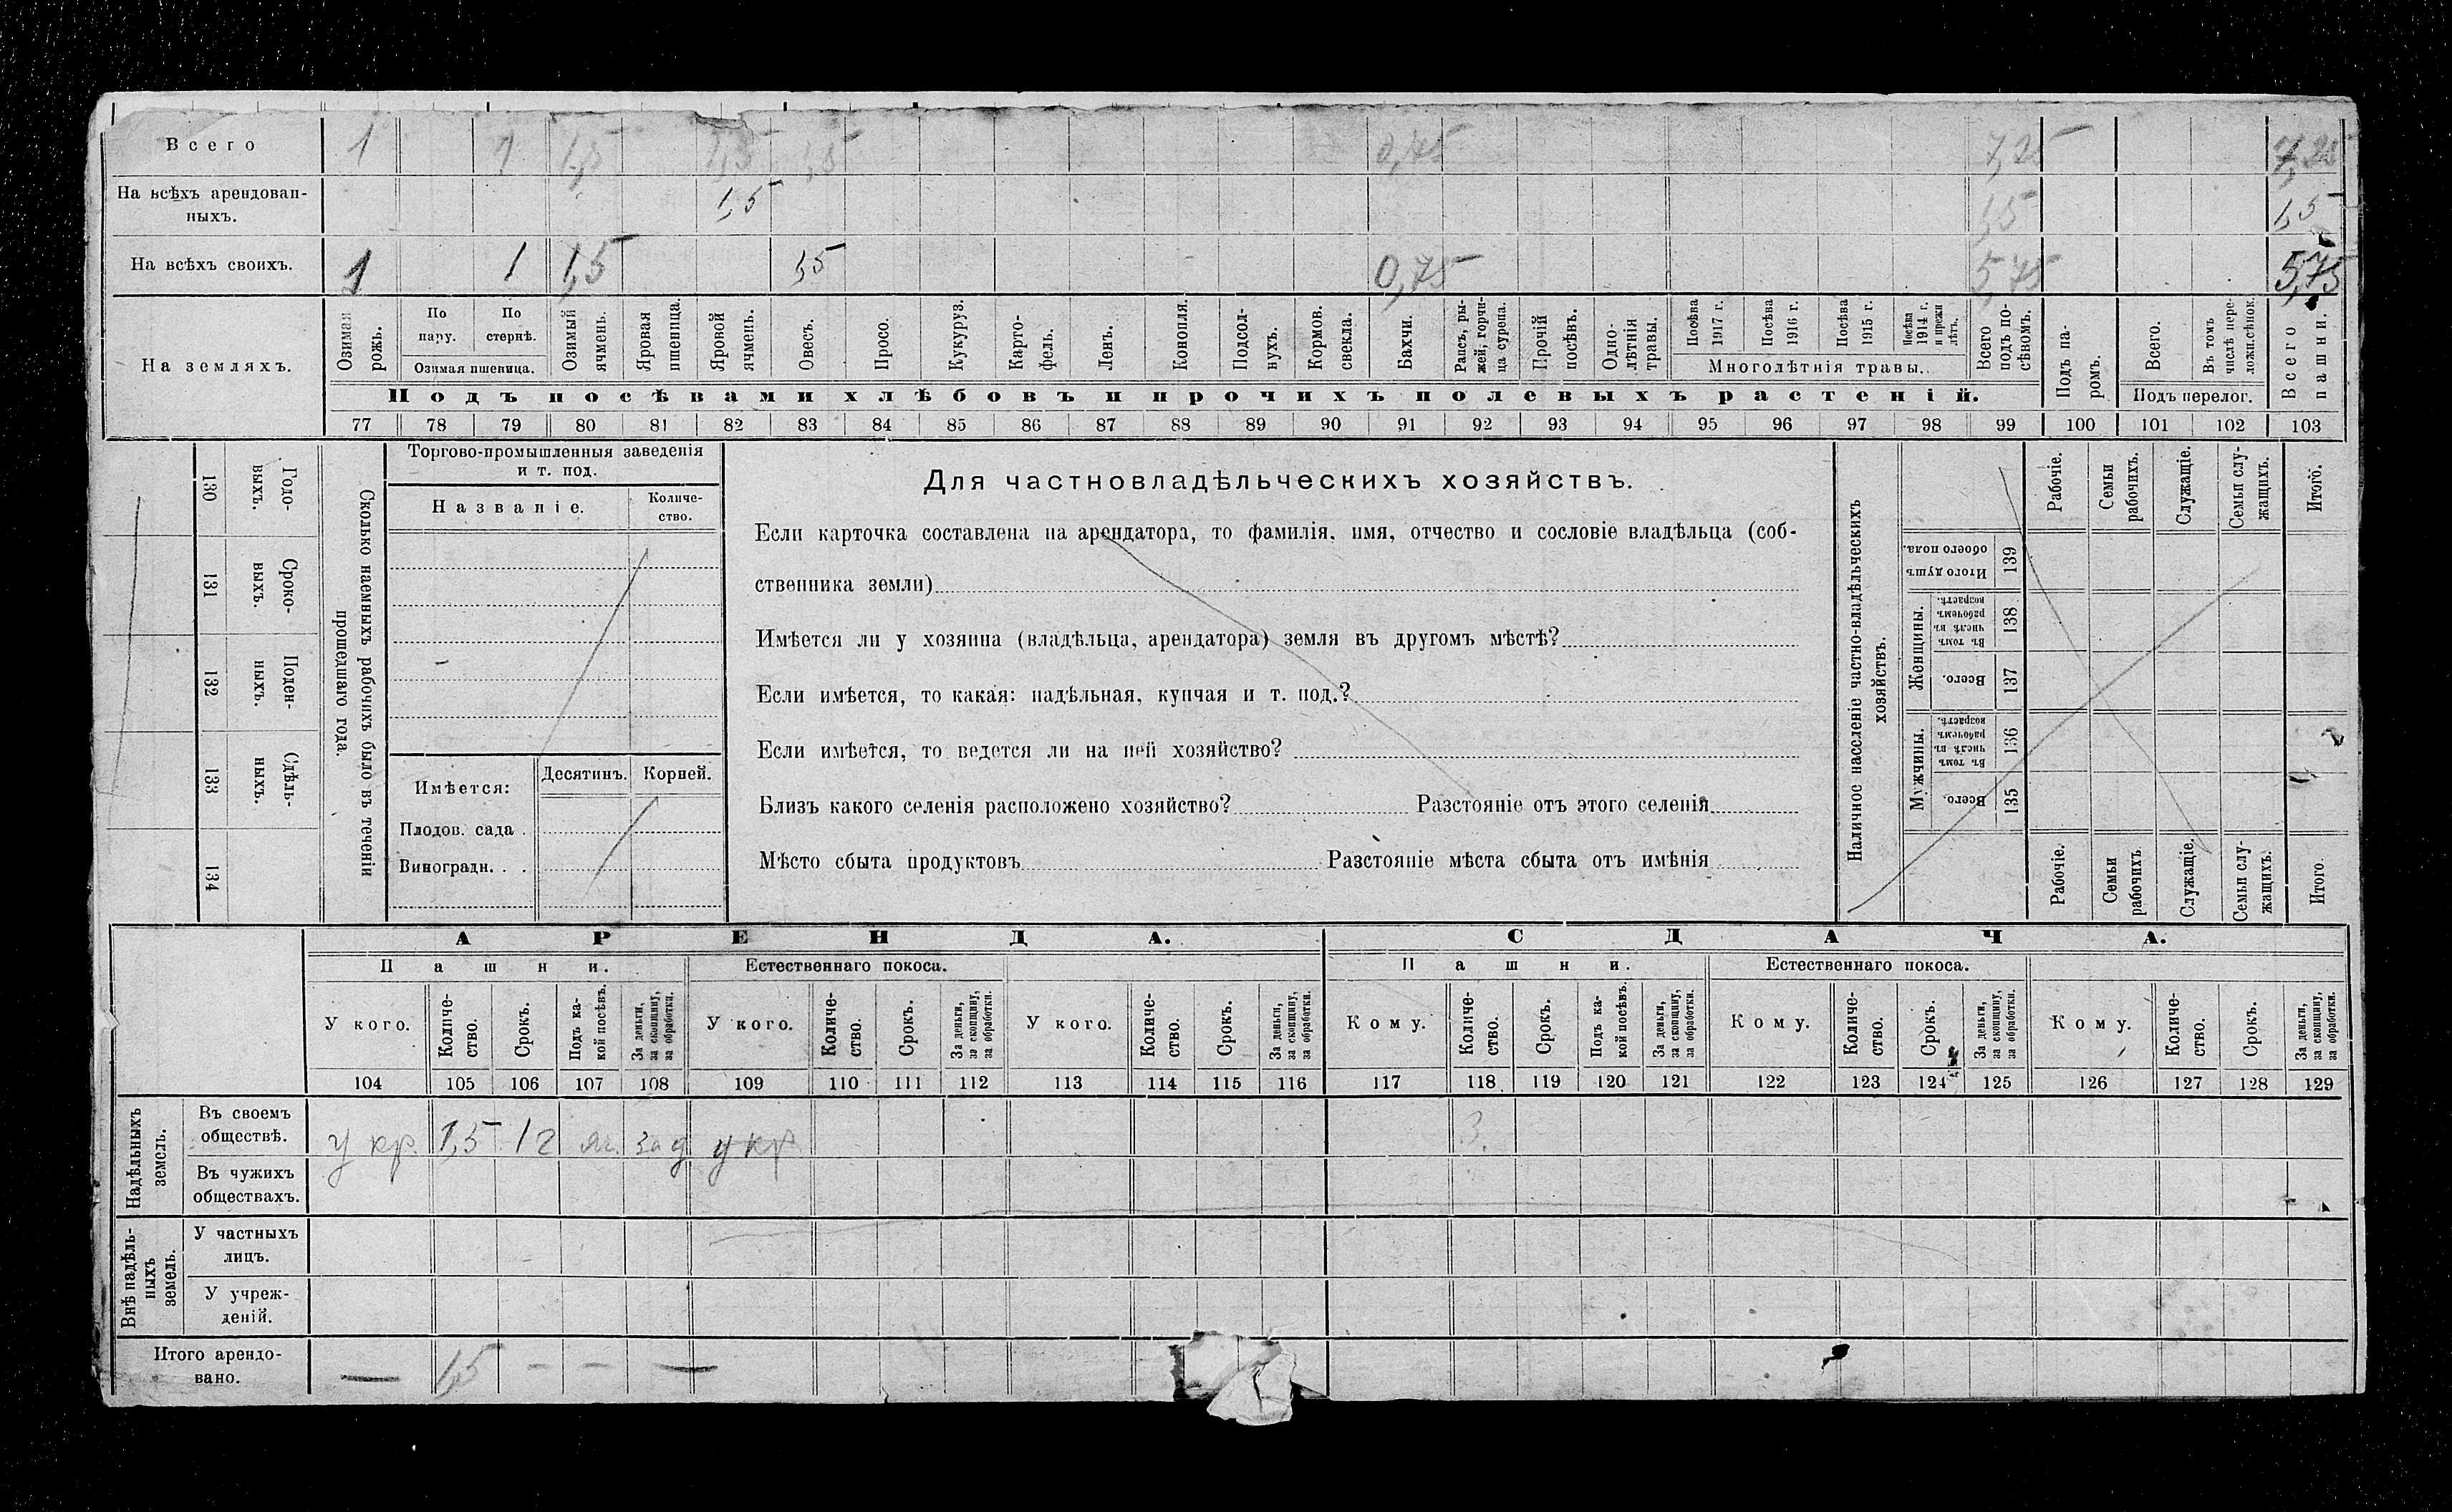 Всего 1 1 1,5 1,5 1,5 0,75 7,25 7,25
На всѣхъ арендован-
ныхъ. 1,5 1,5 1,5
На всѣхъ своихъ. 1 1 1,5 1,5 0,75 5,75 5,75
На земляхъ.
Озимая рожь.
По пару.
По стернѣ.
Озимая пшеница.
Озимый ячмень.
Яровая пшеница.
Яровой ячмень.
Овесъ.
Просо.
Кукуруз.
Карто-
фель.
Ленъ.
Конопля.
Подсол-
нухъ.
Кормов. свекла.
Бахчи.
Рапсъ, ры-
жей, горчи-
ца сурепа.
Прочій посѣвъ.
Одно-
лѣтнія травы.
Посѣва 1917 г.
Посѣва 1916 г.
Посѣва 1915 г.
Посѣва 1914 г. и прежн лѣтъ.
Многолѣтнія травы.
Всего подъ по-
сѣвомъ.
Подъ па-
ромъ.
Всего.
Въ томъ числѣ пере-
ложн.сѣнок.
Подъ перелог.
Всего пашни.
Подъ посѣвами хлѣбовъ и прочихъ полевыхъ растеній.
77 78 79 80 81 82 83 84 85 86 87 88 89 90 91 92 93 94 95 96 97 98 99 100 101 102 103
130 Годо-
выхъ.
131 Сроко-
выхъ.
132 Поден-
ныхъ.
133 Сдѣль-
ныхъ.
134
Сколько наемныхъ рабочихъ было въ теченіи
прошедшаго года.
Торгово-промышленныя заведенія
и т. под.
Названіе.
Количе-
ство.
Имѣется: Десятинъ. Корней.
Плодов. сада .
Виноградн. . .
Для частновладѣльческихъ хозяйствъ.
Если карточка составлена на арендатора, то фамилія, имя, отчество и сословіе владѣльца (соб-
ственника земли)
Имѣется ли у хозяина (владѣльца, арендатора) земля въ другомъ мѣстѣ?
Если имѣется, то какая: надѣльная, купчая и т. под.?
Если имѣется, то ведется ли на ней хозяйство?
Близъ какого селенія расположено хозяйство? Разстояніе отъ этого селенія
Мѣсто сбыта продуктовъ Разстояніе мѣста сбыта отъ имѣнія
Наличное населеніе частно-владѣльческихъ
хозяйствъ.
Рабочіе.
Семьи рабочихъ.
Служащіе.
Семьи слу-
жащихъ.
Итого.
Итого душъ обоего пола. 139
Женщины.
Въ томъ числѣ въ рабочемъ возрастѣ. 138
Всего. 137
Мужчины.
Въ томъ числѣ въ рабочемъ возрастѣ. 136
Всего. 135
Рабочіе.
Семьи рабочихъ
Служащіе.
Семьи слу-
жащихъ.
Итого.
АРЕНДА. СДАЧА.
Пашни. Естественнаго покоса. Пашни. Естественнаго покоса.
У кого.
Количе-
ство.
Срокъ.
Подъ ка-
кой посѣвъ.
За деньги,
за скопщину,
за обработки.
У кого.
Количе-
ство.
Срокъ.
За деньги,
за скопщину,
за обработки.
У кого.
Количе-
ство.
Срокъ.
За деньги,
за скопщину,
за обработки.
Кому.
Количе-
ство.
Срокъ.
Подъ ка-
кой посѣвъ.
За деньги,
за скопщину,
за обработки.
Кому.
Количе-
ство.
Срокъ.
За деньги,
за скопщину,
за обработки.
Кому.
Количе-
ство.
Срокъ.
За деньги,
за скопщину,
за обработки.
104 105 106 107 108 109 110 111 112 113 114 115 116 117 118 119 120 121 122 123 124 125 126 127 128 129
Надѣльныхъ
земель.
Въ своемъ
обществѣ. у кр. 1,5 1 г яч. за д у кр 3.
Въ чужихъ
обществахъ.
Внѣ надѣль-
ныхъ
земель.
У частныхъ
лицъ.
У учреж-
деній.
Итого арендо-
вано. — 1,5 — — —